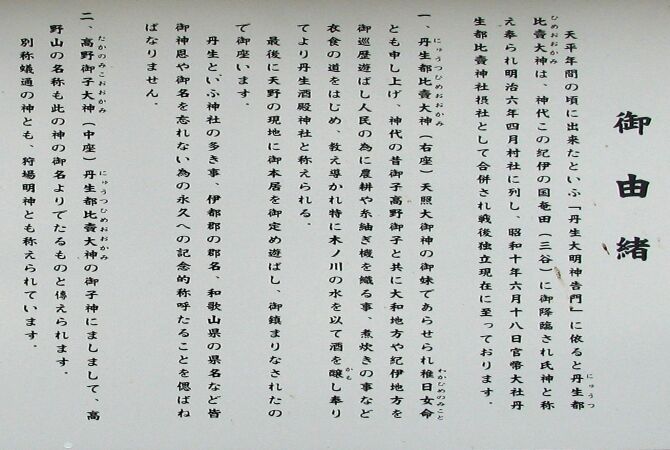 御由緒
天平年間の頃に出来たといふ「丹生大明神告門」に依ると丹生都
比賣大神は、神代この紀伊の国奄田（三谷）に御降臨され氏神と称
え奉られ明治六年四月村社に列し、昭和十年六月十八日官幣大社丹
生都比賣神社摂社として合併され戦後独立現在に至っております。
一、丹生都比賣大神（右座）天照大御神の御妹であらせられ稚日女命
とも申し上げ、神代の昔御子高野御子と共に大和地方や紀伊地方を
御巡歴遊ばし人民の為に農耕や糸紬ぎ機を織る事、煮炊きの事など
衣食の道をはじめ、教え導かれ特に木ノ川の水を以て酒を醸し奉り
てより丹生酒殿神社と称えられる。
最後に天野の現地に御本居を御定め遊ばし、御鎮まりなされたの
で御座います。
丹生といふ神社の多き事、伊都郡の郡名、和歌山県の県名など皆
御神恩や御名を忘れない為の永久への記念的称呼たることを偲ばね
ばなりません。
二、高野御子大神（中座）丹生都比賣大神の御子神にましまして、高
野山の名称も此の神の御名よりでたるものと傳えられます。
別称蟻通の神とも、狩場明神とも称えられています。